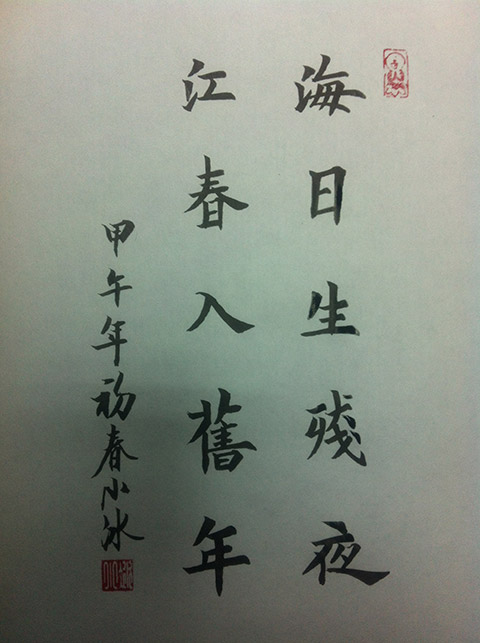 海日生殘夜
江春入舊年
甲午年初春小冰